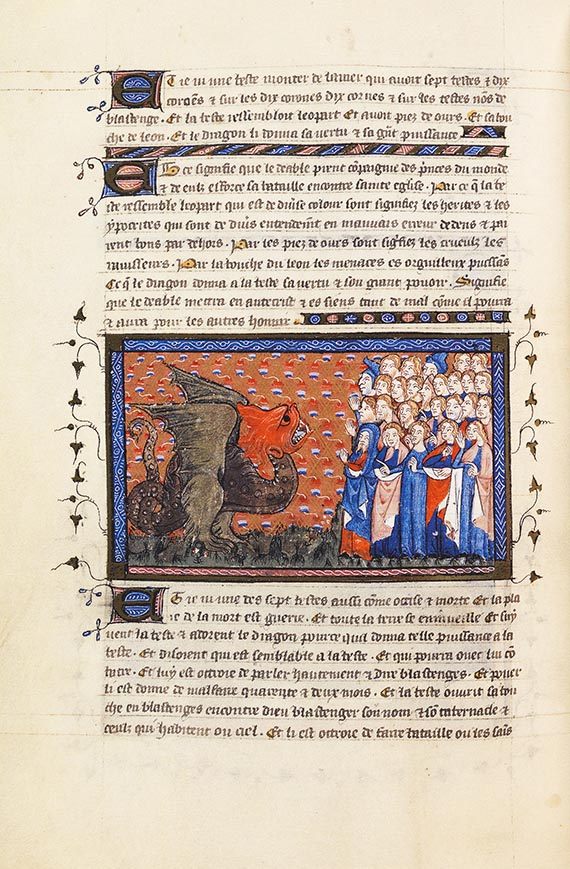 Et ie ui une beste monter de la mer qui auoit sept testes ⁊ dix
cornes ⁊ sur les dix cornes dix corones ⁊ sur les testes nōs de
blastenge. Et la beste ressembloit leopart Et auoit piez de ours. Et sa bou
che de leon. Et le dragon li donna sa vertu ⁊ sa gūt puissance
Et ce signifie que le deable prent cōpaignie des p̄nces du monde
⁊ de eulz efforce sa bataille encontre sainte eglise. Par ce q̄ la be
ste ressemble leopart qui est de diuse colour sont signifiez les herites ⁊ les
ypocrites qui sont de diuīs entendem̄t en mauuais erreur dedens ⁊ pai
rent bons par dehors. Par les piez de ours sont sig̃fiez les crueulz les
rauisseurs. Par la bouche du leon les menaces es orguilleux puissās
Ce q̄ le dragon donna a la beste sa vertu ⁊ son grant pouoir. Signifie
que le deable mettra en antecrist ⁊ es siens tant de mal cōme il pourra
⁊ aura pour les autres honnir
Et ie ui une des sept testes aussi cōme occise ⁊ morte Et la pla
ie de la mort est guerie. Et toute la terre se emerueille Et suy
uent la beste ⁊ adorent le dragon pource qui donna telle puissance a la
beste. Et disoient qui est semblable a la beste. Et qui pourra ouec lui cō
batre. Et luy est octroie de parler hautement ⁊ dire blastenges. Et pouer
li est donne de malfaire quarente ⁊ deux mois. Et la beste ouurit sa bou
che en blastenges encontre dieu blastenger son nom ⁊ sō tabernacle ⁊
ceulz qui habitent ou ciel. Et li est octroie de faire bataille ou les saīs